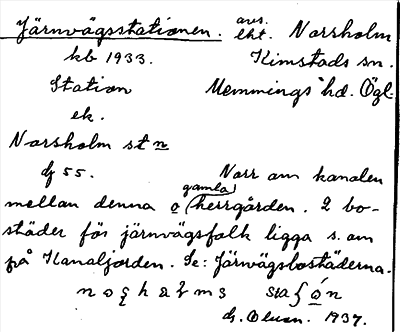 Järnvägsstationen. avs. lht. Norsholm
kb 1933. Kimstads sn.
Station Memmings hd. Ögl.
ek.
Norsholm st n
55. Norr om kanalen
gamla
mellan denna o herrgården. 2 bo-
städer för järnvägsfolk ligga s. om
på Kanaljorden. Se: Järnvägsbostäderna.
1937.